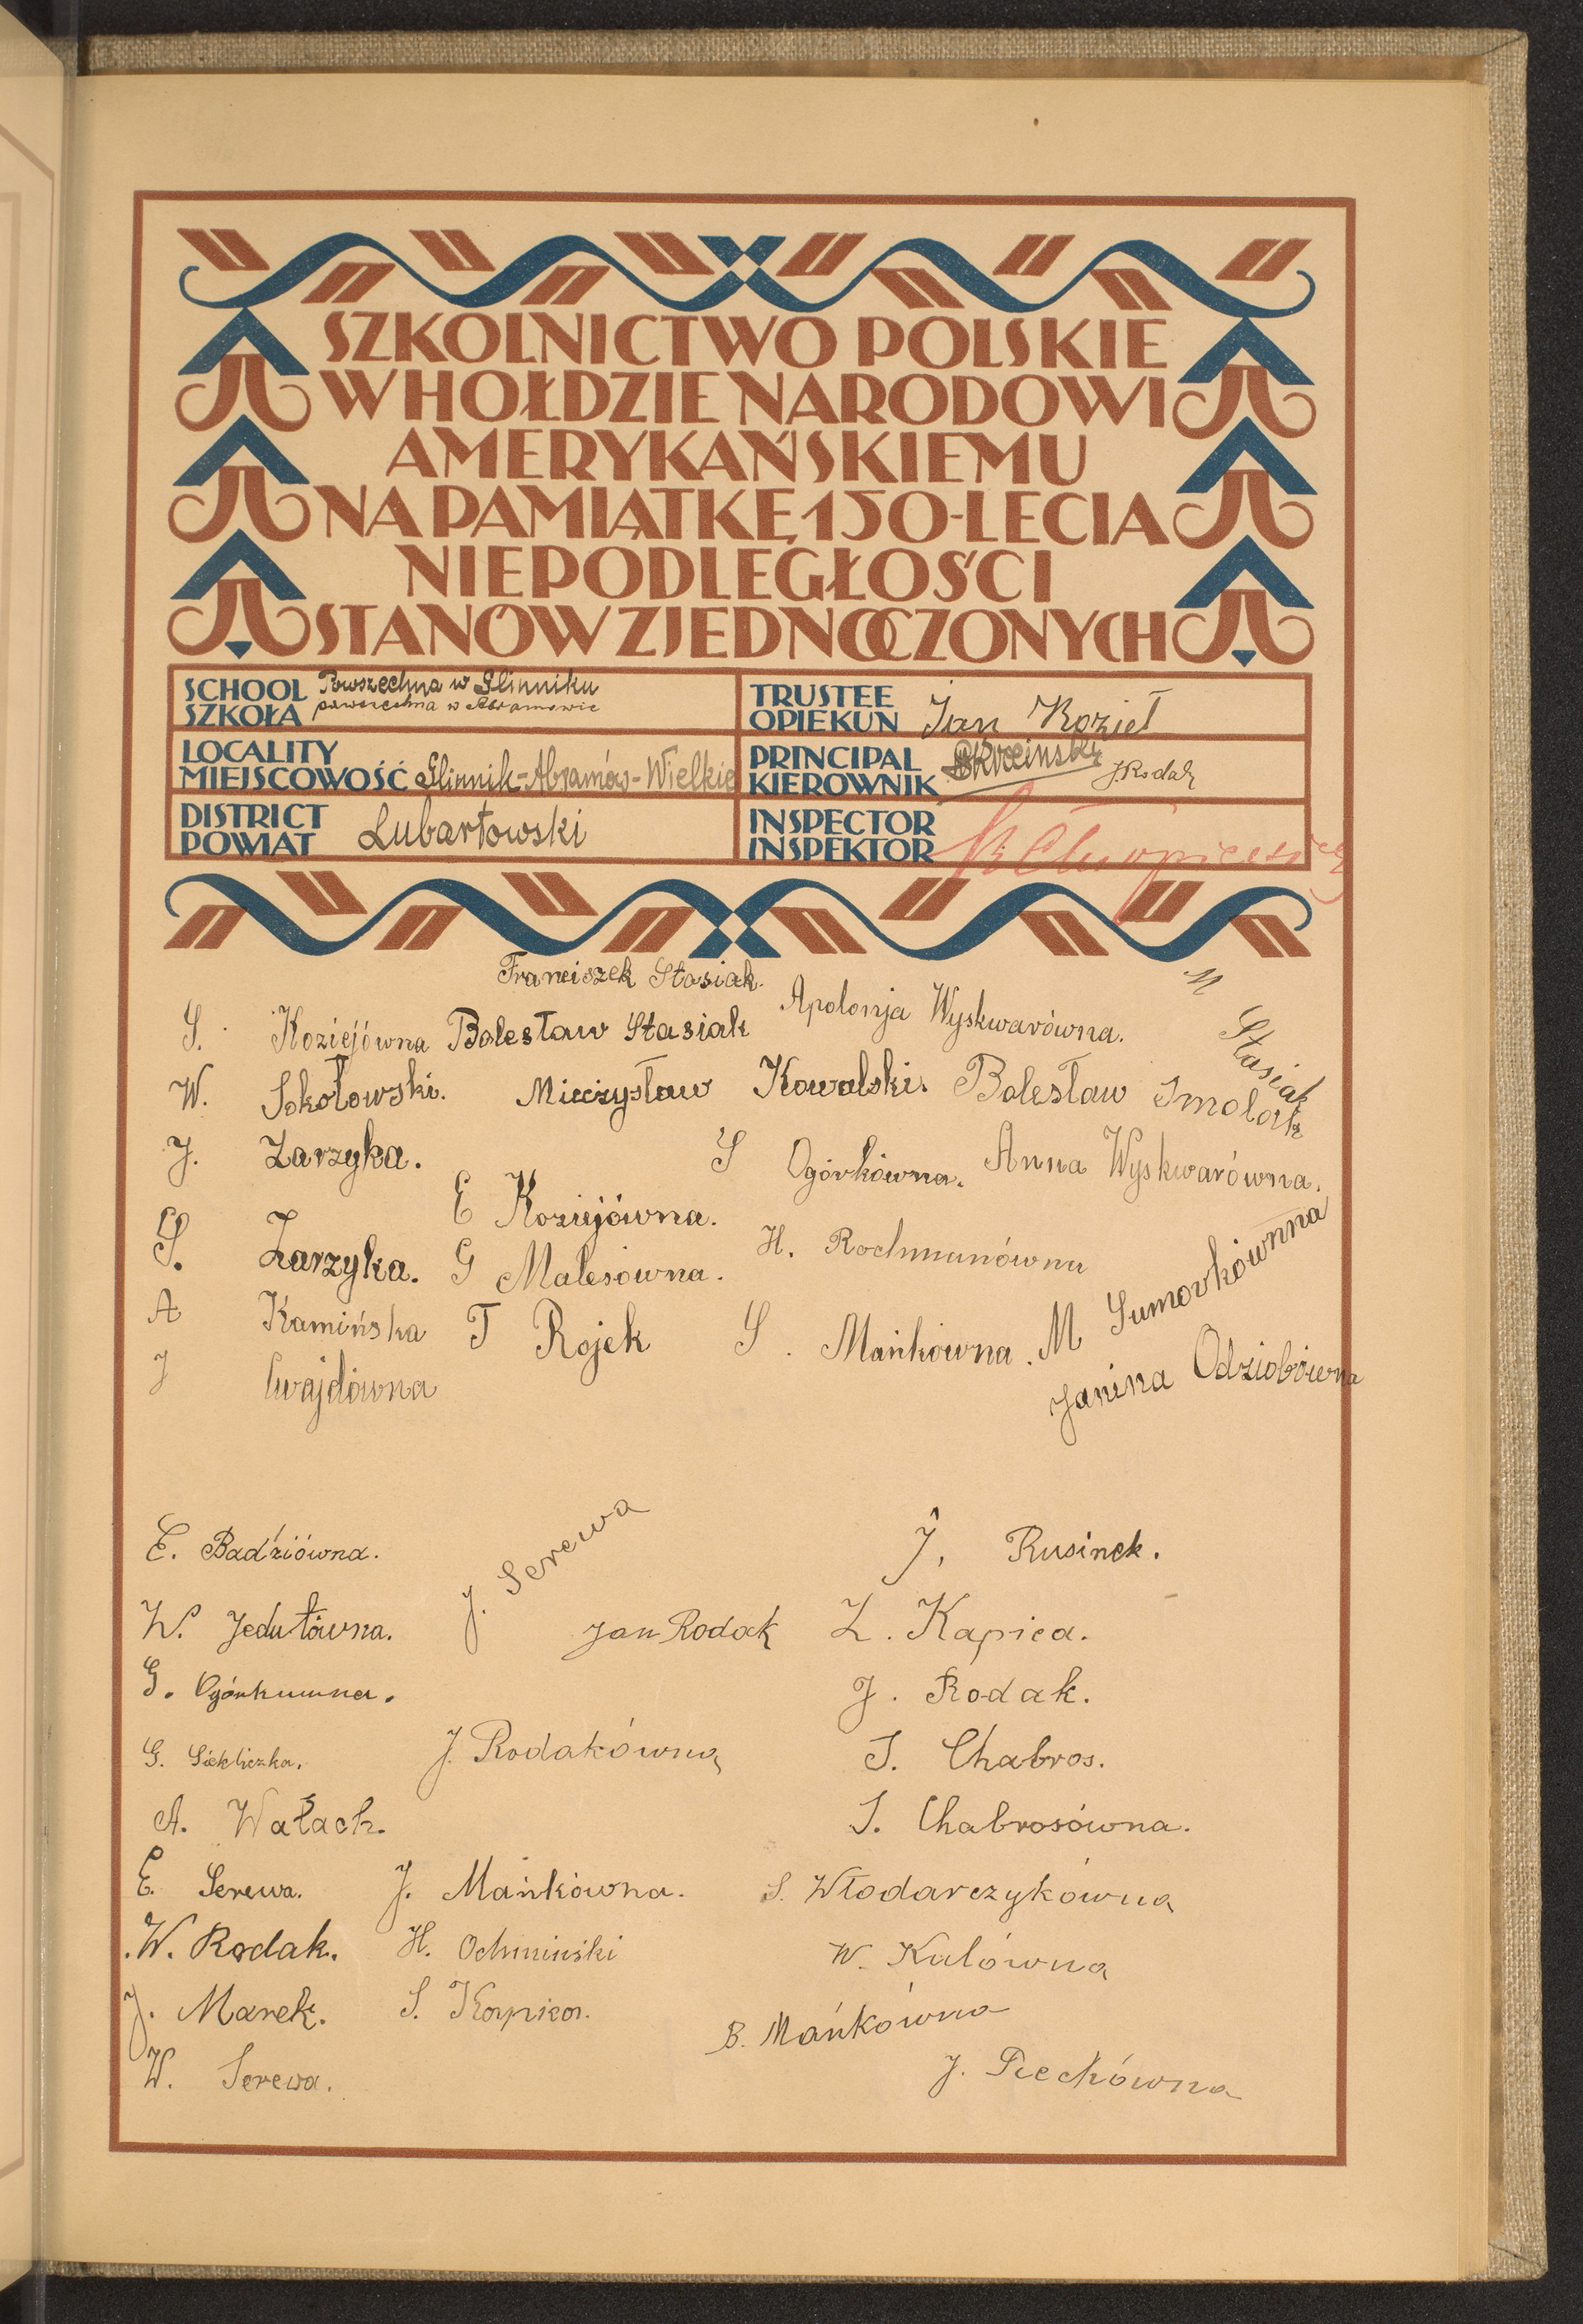 SZKOLNICTWO POLSKIE
W HOŁDZIE NARODOWI
AMERYKAŃSKIEMU
NA PAMIĄTKĘ 150-LECIA
NIEPODLEGŁOŚCI
STANÓW ZJEDNOCZONYCH
SCHOOL
SZKOŁA
Powszechna w Glinniku
powszechna w Abramowie
TRUSTEE
OPIEKUN
Jan Kozieł
LOCALITY
MIEJSCOWOŚĆ Glinnik-Abramów-Wielkie
PRINCIPAL
KIEROWNIK
J. Rodak
DISTRICT
POWIAT
Lubartowski
INSPECTOR
INSPEKTOR
Franciszek Stasiak.
S. Koziejówna
Bolesław Stasiak
Apolonja Wyskwarówna.
M Stasiak
W. Sokołowski.
Mieczysław Kowalski.
Bolesław Smolak
J. Zarzyka.
S Ogórkówna.
Anna Wyskwarówna.
E Koziejówna.
S. Zarzyka.
G Malesówna.
H. Rochmunówna
A Kamińska
T Rojek
S. Mańkówna.
M Sumorkównna
J Cwajdówna
Janina Odziobówna
E. Badziówna.
J. Serewa
J. Rusinek.
W. Jedutówna.
Jan Rodak
Z. Kapica.
G. Ogórkuwna.
J. Rodak.
G. Siekliczka.
J. Rodakówna
S. Chabros.
A. Wałach.
S. Chabrosówna.
E. Serewa.
J. Mańkówna.
S. Włodarczykówna
W. Rodak.
H. Ochmiński
W. Kulówna
J. Marek.
S. Kapica.
B. Mańkówna
W. Serewa.
J. Piechówna